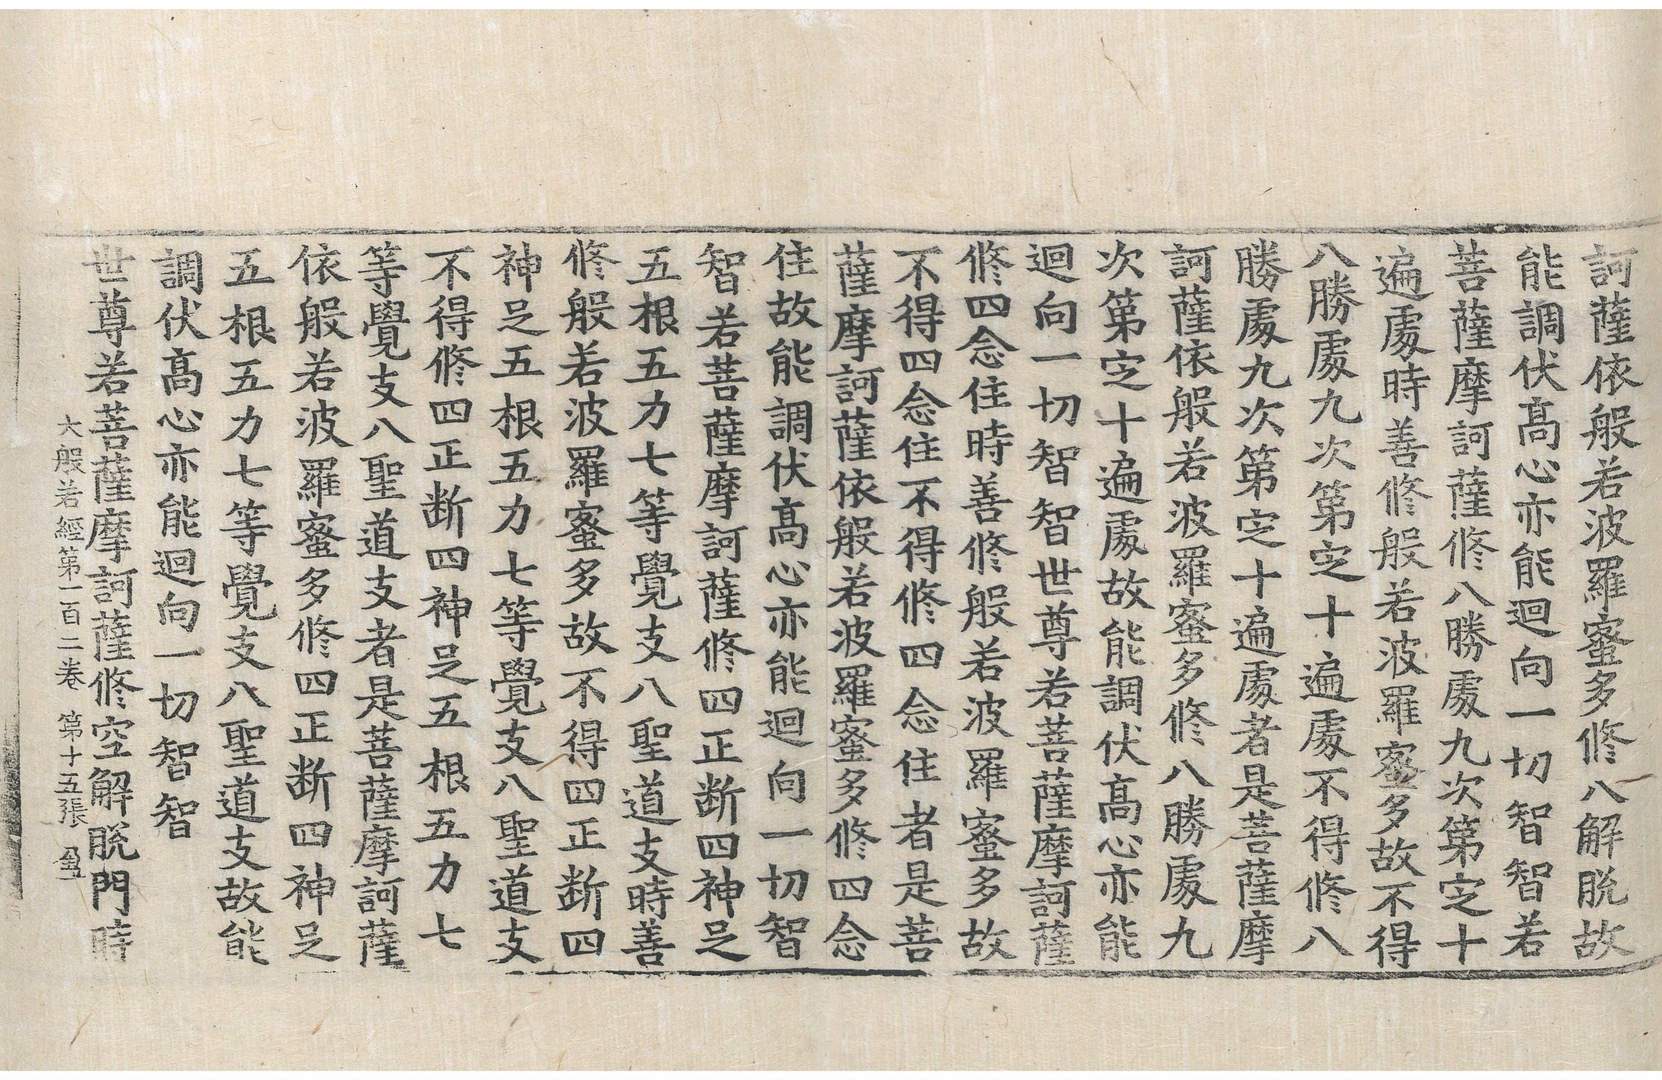 訶薩依般若波羅蜜多修八解脫故
能調伏高心亦能迴向一切智智若
菩薩摩訶薩修八勝處九次第定十
遍處時善修般若波羅蜜多故不得
八勝處九次第定十遍處不得修八
勝處九次第定十遍處者是菩薩摩
訶薩依般若波羅蜜多修八勝處九
次第定十遍處故能調伏高心亦能
迴向一切智智世尊若菩薩摩訶薩
修四念住時善修般若波羅蜜多故
不得四念住不得修四念住者是菩
薩摩訶薩依般若波羅蜜多修四念
住故能調伏高心亦能迴向一切智
智若菩薩摩訶薩修四正断四神足
五根五力七等覺支八聖道支時善
修般若波羅蜜多故不得四正断四
神足五根五力七等覺支八聖道支
不得修四正断四神足五根五力七
等覺支八聖道支者是菩薩摩訶薩
依般若波羅蜜多修四正断四神足
五根五力七等覺支八聖道支故能
調伏高心亦能迴向一切智智
世尊若菩薩摩訶薩修空解脫門時
大般若經第一百二卷 第十五張 盈